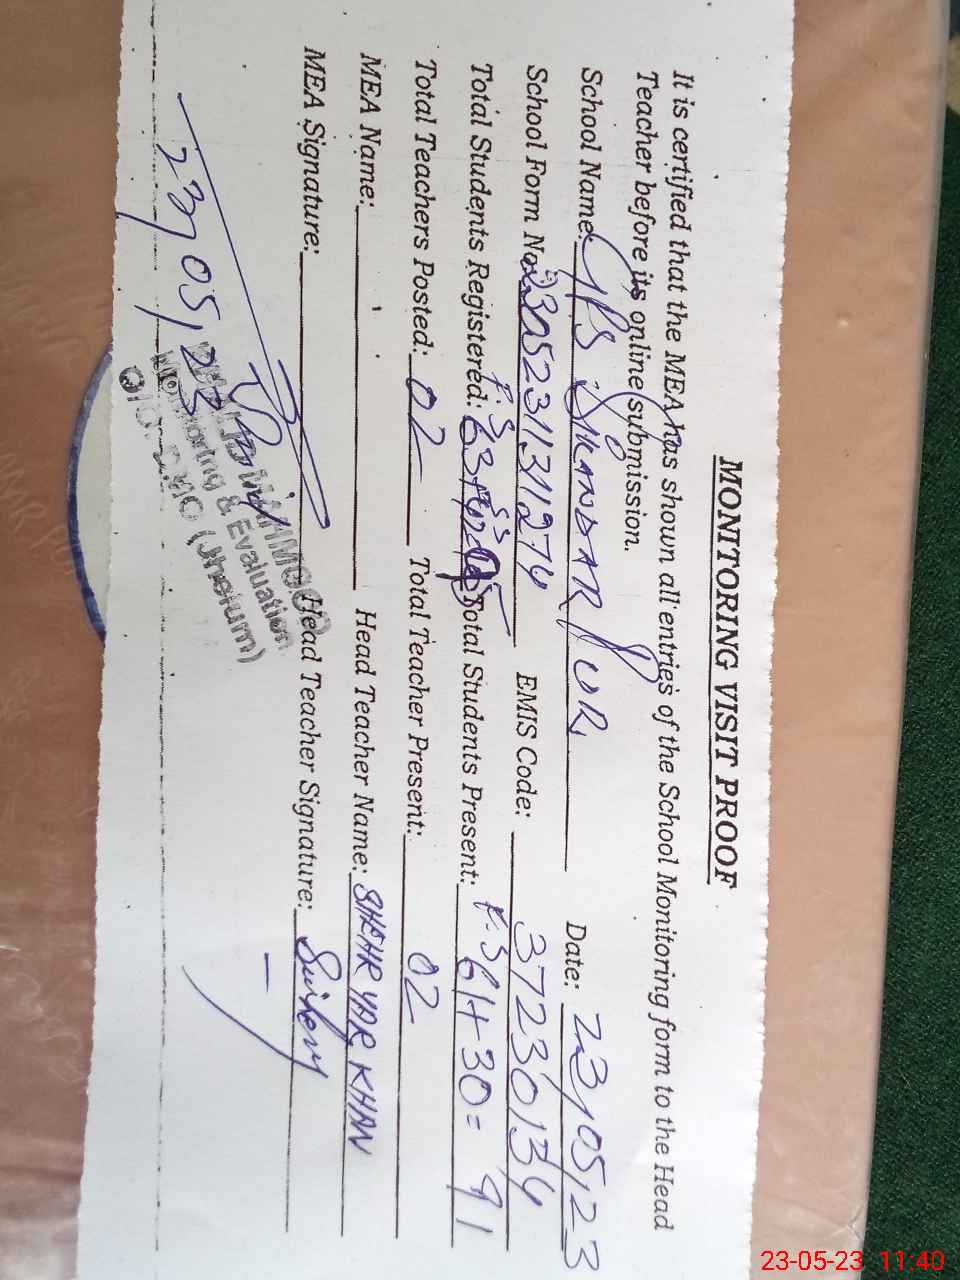 MONITORING VISIT PROOF
It is certified that the MEA has shown all entries of the School Monitoring form to the Head
Teacher before its online submission.
School Name: GPS SIKANDAR PUR Date: 23/05/23
School Form No: EMIS Code: 37230134
Total Students Registered: Total Students Present: 61+30= 91
Total Teachers Posted: 02 Total Teacher Present: 02
MEA Name: Head Teacher Name: SHEHR YAR KHAN
MEA Signature: Head Teacher Signature:
23/05/23
Monitoring & Evaluation
(Jhelum)
23-05-23 11:40